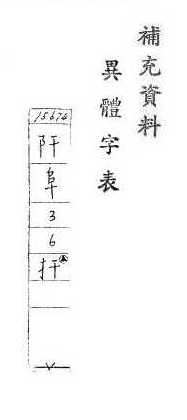 補充資料
異體字表
15674
阡
阜
3
6
扦